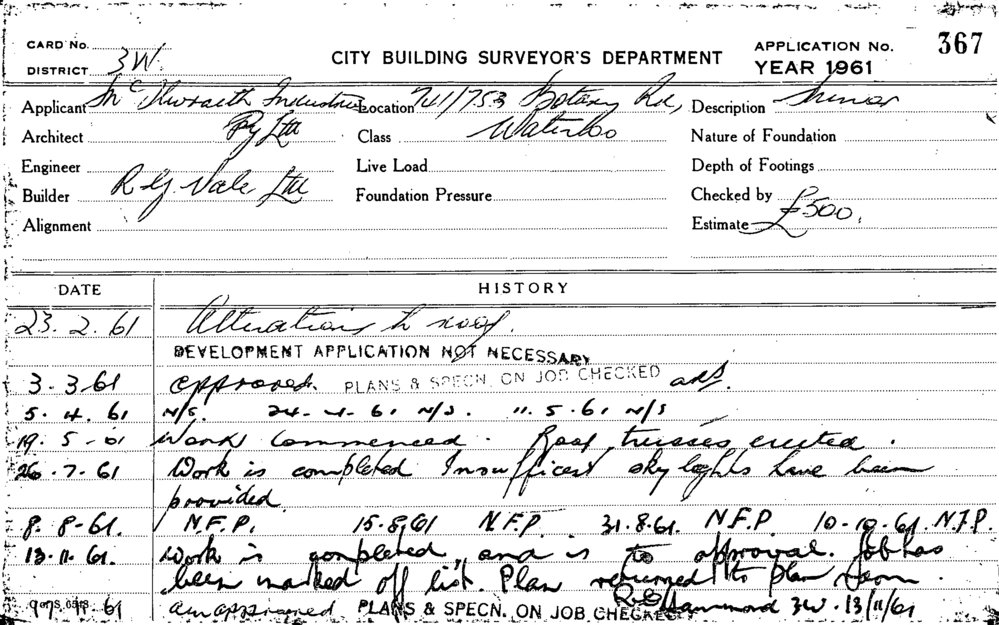 CARD No.
DISTRICT 3W.
CITY BUILDING SURVEYOR'S DEPARTMENT
APPLICATION No. 367
YEAR 1961
Applicant McIlwraith Industries Location 741/753 Botany Rd, Description Minor
Architect Pty Ltd Class Waterloo Nature of Foundation
Engineer Live Load Depth of Footings
Builder R G Vale Ltd Foundation Pressure Checked by
Alignment Estimate £500.
DATE HISTORY
23. 2. 61 Alterations to roof.
DEVELOPMENT APPLICATION NOT NECESSARY
3-3-61 approved. PLANS & SPECN. ON JOB CHECKED
5. 4. 61 N/S. 24-4-61 N/S. 11.5.61 N/S
19. 5-61 Work commenced. Roof trusses erected.
26-7-61 Work is completed Insufficent sky lights have been
provided.
8. 8-61. N.F.P. 15-8-61 N.F.P. 31.8.61. N.F.P 10-10-61. N.F.P.
13.11.61. Work is completed and is to approval. Job has
been marked off list. Plan returned to plan room.
61 PLANS & SPECN. ON JOB CHECKED Hammond 3W-13/11/61